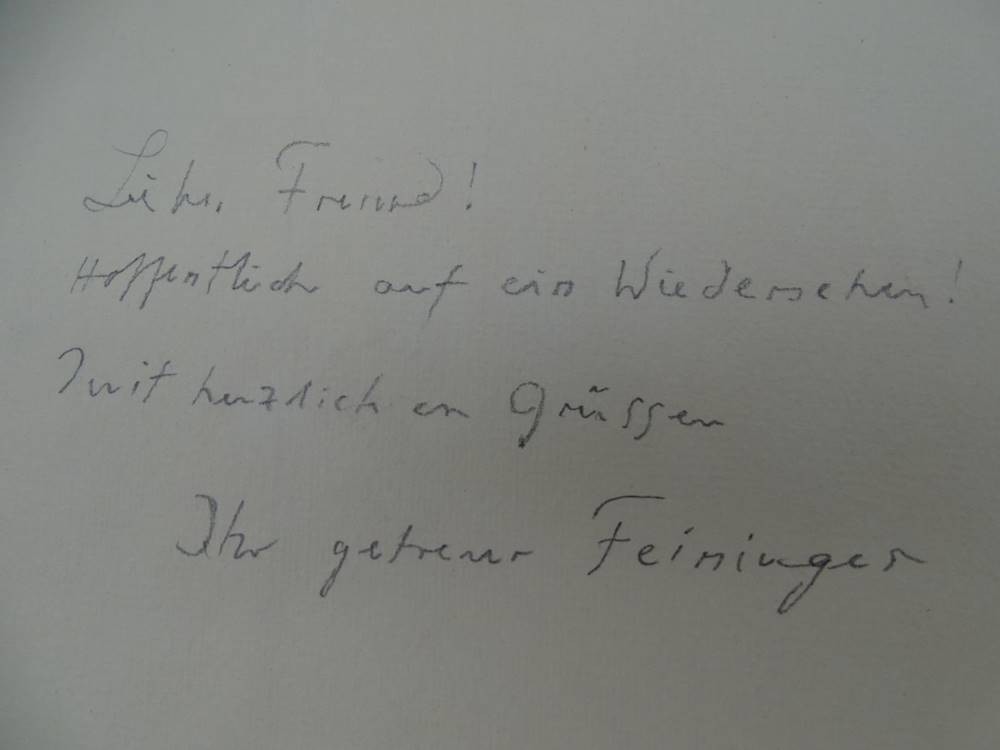 Lieber Freund!
Hoffentlich auf ein Wiedersehen!
Mit herzlichen Grüssen
Ihr getreuer Feininger